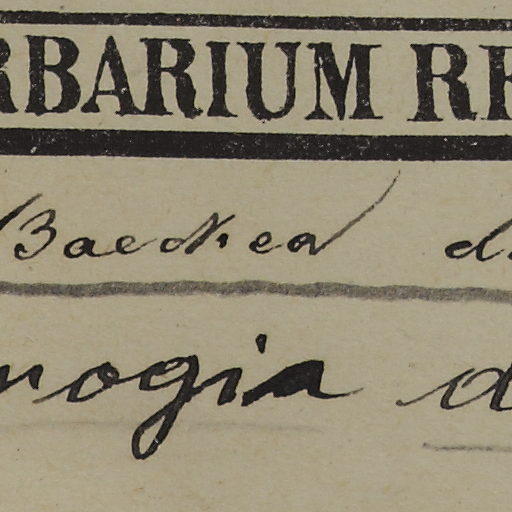 RBARIUM RE
Baeckea d
nogia d